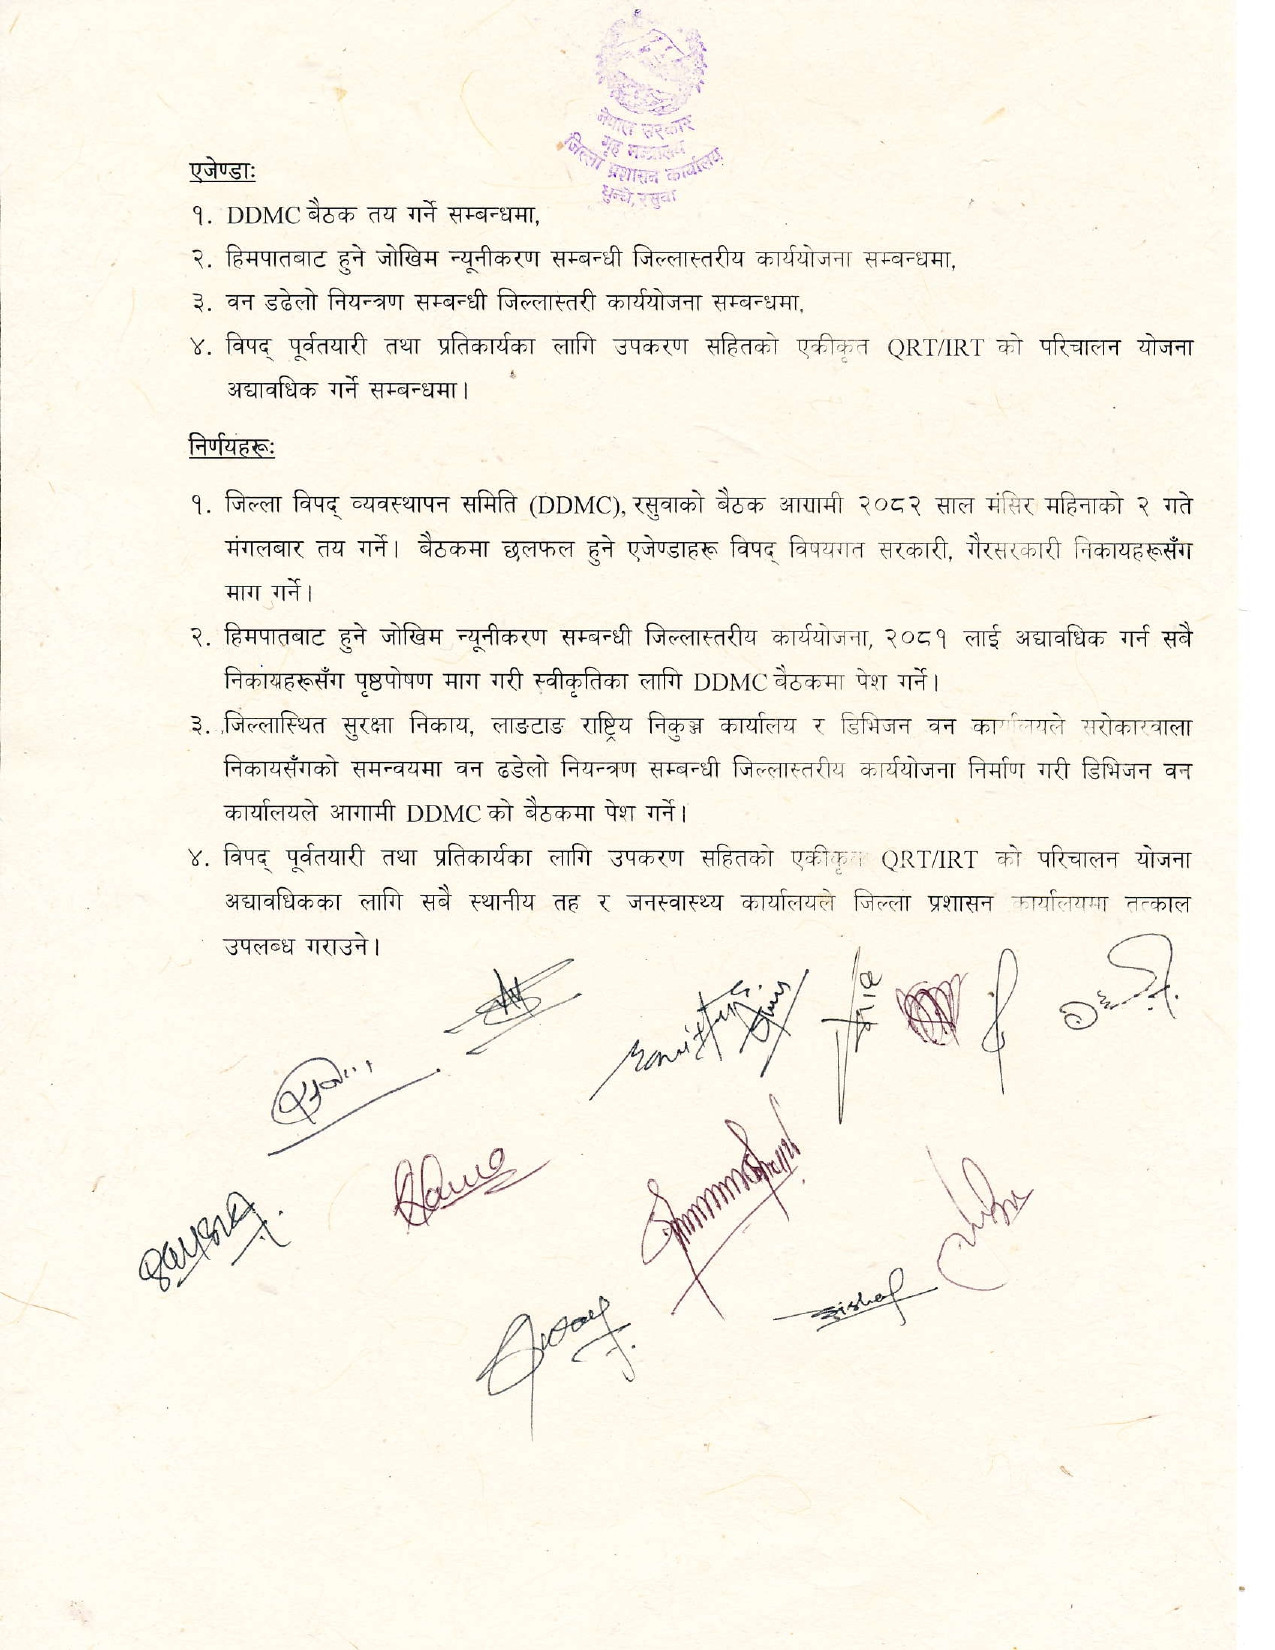 नेपाल सरकार
गृह मन्त्रालय
जिल्ला प्रशासन कार्यालय
धुन्चे, रसुवा
एजेण्डाः
१. DDMC बैठक तय गर्ने सम्बन्धमा,
२. हिमपातबाट हुने जोखिम न्यूनीकरण सम्बन्धी जिल्लास्तरीय कार्ययोजना सम्बन्धमा,
३. वन डढेलो नियन्त्रण सम्बन्धी जिल्लास्तरी कार्ययोजना सम्बन्धमा,
४. विपद् पूर्वतयारी तथा प्रतिकार्यका लागि उपकरण सहितको एकीकृत QRT/IRT को परिचालन योजना
अद्यावधिक गर्ने सम्बन्धमा।
निर्णयहरूः
१. जिल्ला विपद् व्यवस्थापन समिति (DDMC), रसुवाको बैठक आगामी २०८२ साल मंसिर महिनाको २ गते
मंगलबार तय गर्ने। बैठकमा छलफल हुने एजेण्डाहरू विपद् विषयगत सरकारी, गैरसरकारी निकायहरूसँग
माग गर्ने।
२. हिमपातबाट हुने जोखिम न्यूनीकरण सम्बन्धी जिल्लास्तरीय कार्ययोजना, २०८१ लाई अद्यावधिक गर्न सबै
निकायहरूसँग पृष्ठपोषण माग गरी स्वीकृतिका लागि DDMC बैठकमा पेश गर्ने।
३. जिल्लास्थित सुरक्षा निकाय, लाङटाङ राष्ट्रिय निकुञ्ज कार्यालय र डिभिजन वन कार्यालयले सरोकारवाला
निकायसँगको समन्वयमा वन ढडेलो नियन्त्रण सम्बन्धी जिल्लास्तरीय कार्ययोजना निर्माण गरी डिभिजन वन
कार्यालयले आगामी DDMC को बैठकमा पेश गर्ने।
४. विपद् पूर्वतयारी तथा प्रतिकार्यका लागि उपकरण सहितको एकीकृत QRT/IRT को परिचालन योजना
अद्यावधिकका लागि सबै स्थानीय तह र जनस्वास्थ्य कार्यालयले जिल्ला प्रशासन कार्यालयमा तत्काल
उपलब्ध गराउने।